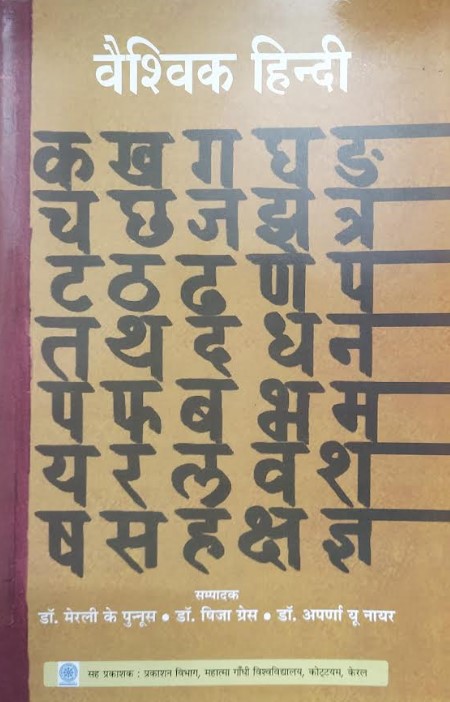 वैश्विक हिन्दी
क ख ग घ ङ
च छ ज झ त्र
ट ठ ढ ण प
त थ द ध न
प फ ब भ म
य र ल व श
ष स ह क्ष ज्ञ
सम्पादक
डॉ. मेरली के पुन्नूस • डॉ. षिजा ग्रेस • डॉ. अपर्णा यू नायर
सह प्रकाशक : प्रकाशन विभाग, महात्मा गाँधी विश्वविद्यालय, कोट्टयम, केरल